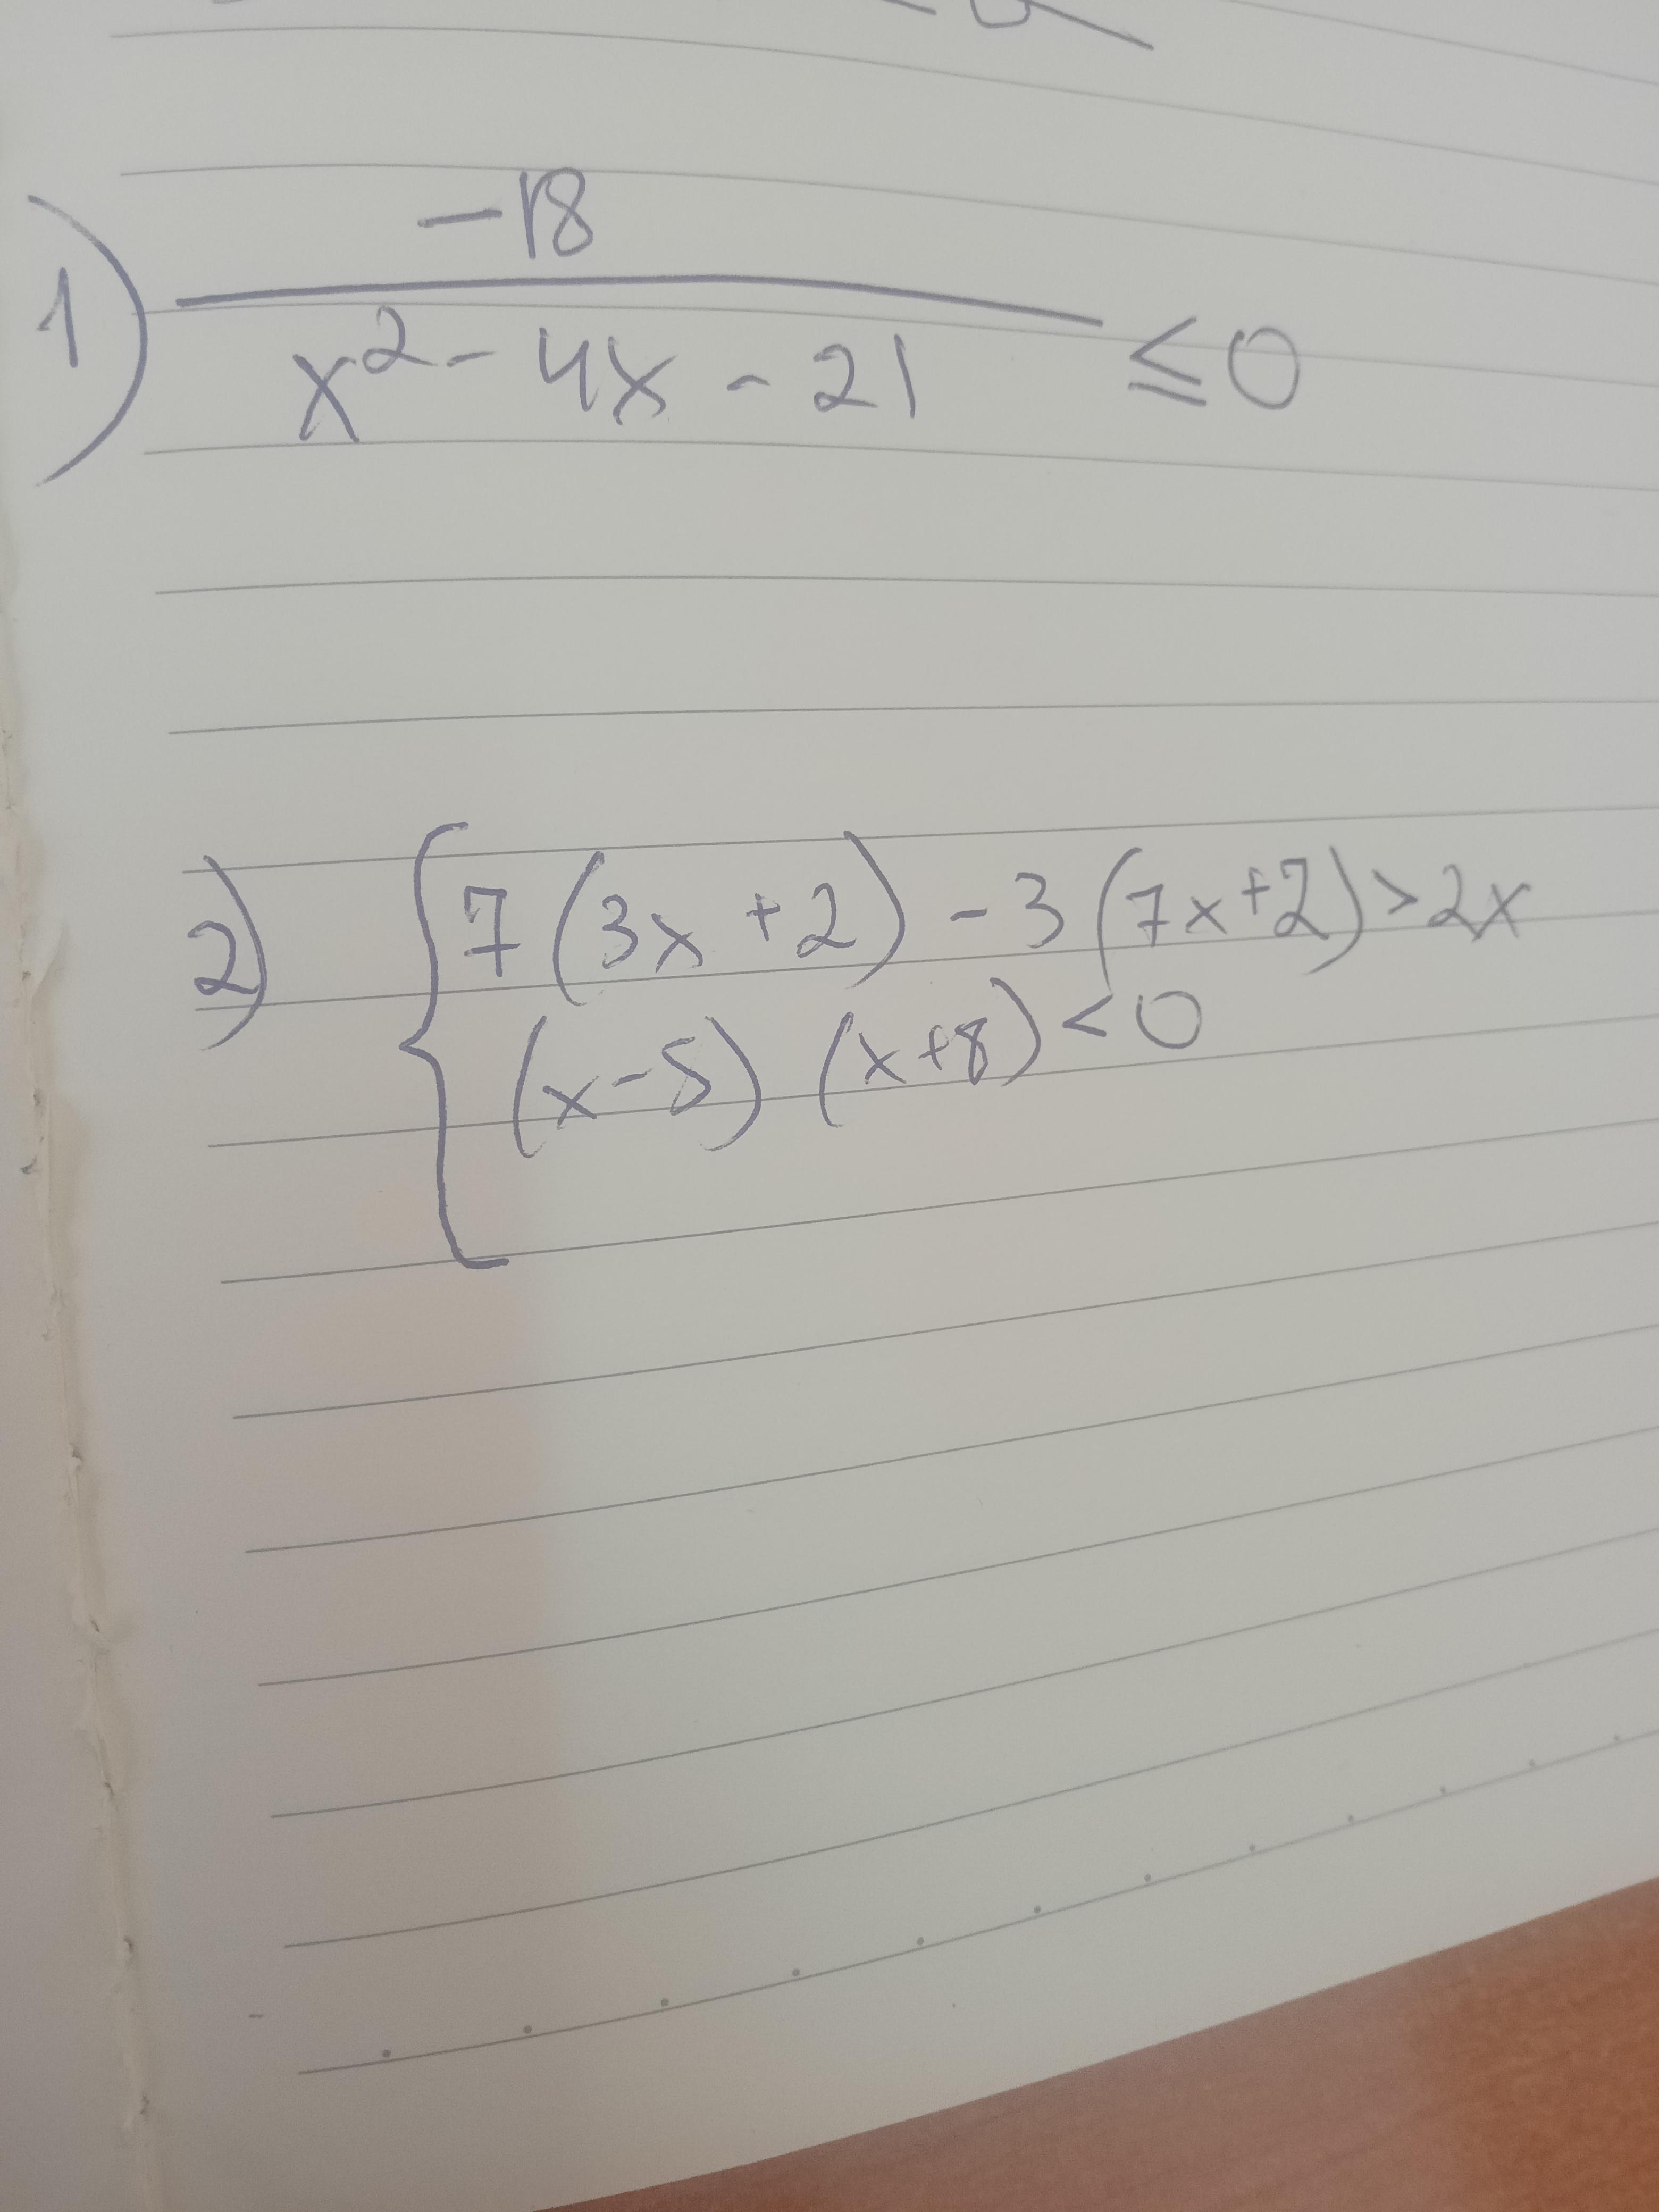 1) -18 / x² - 4x - 21 ≤ 0
2) { 7(3x+2) - 3(7x+2) > 2x
(x-5)(x+8) < 0